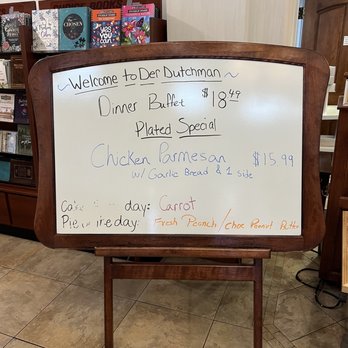 ~ Welcome to Der Dutchman ~
Dinner Buffet $18.49
Plated Special
Chicken Parmesan $15.99
w/ Garlic Bread & 1 side
day: Carrot
Pie day: Fresh Peach / Choc Peanut Butter
YES YOU CAN!